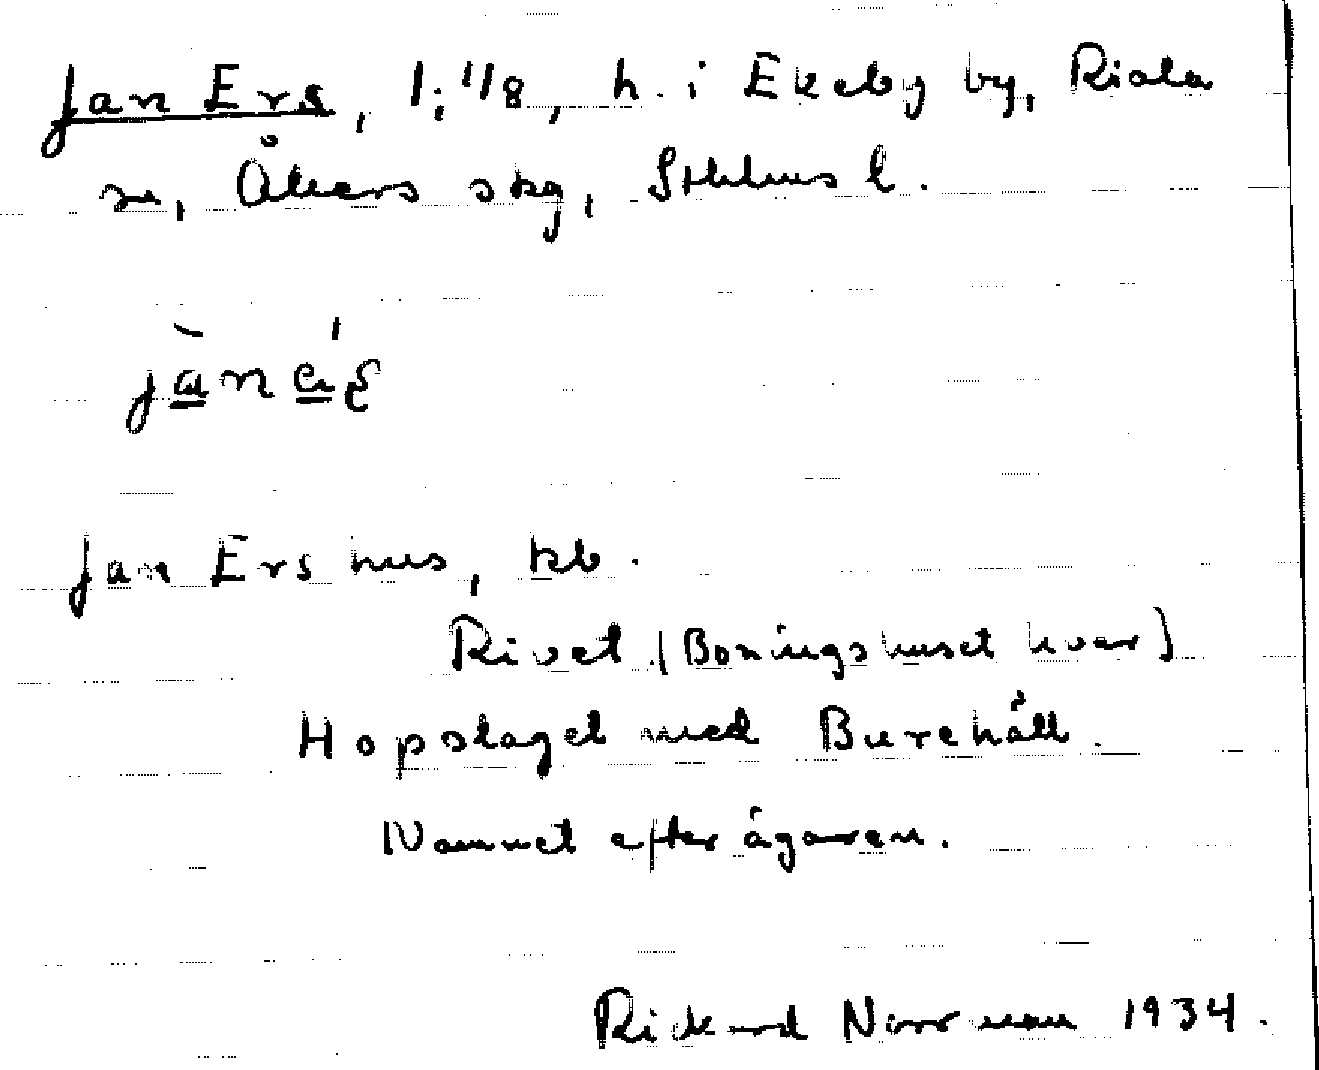 Jan Ers, 1:1/8, h. i Ekeby by, Riala
sn, Åkers skg, Sthlms l.
Jan Ers hus, kb.
Rivet (Boningshuset kvar)
Hopslaget med Burehåll.
Namnet efter ägaren.
Rickard Norrman 1934.